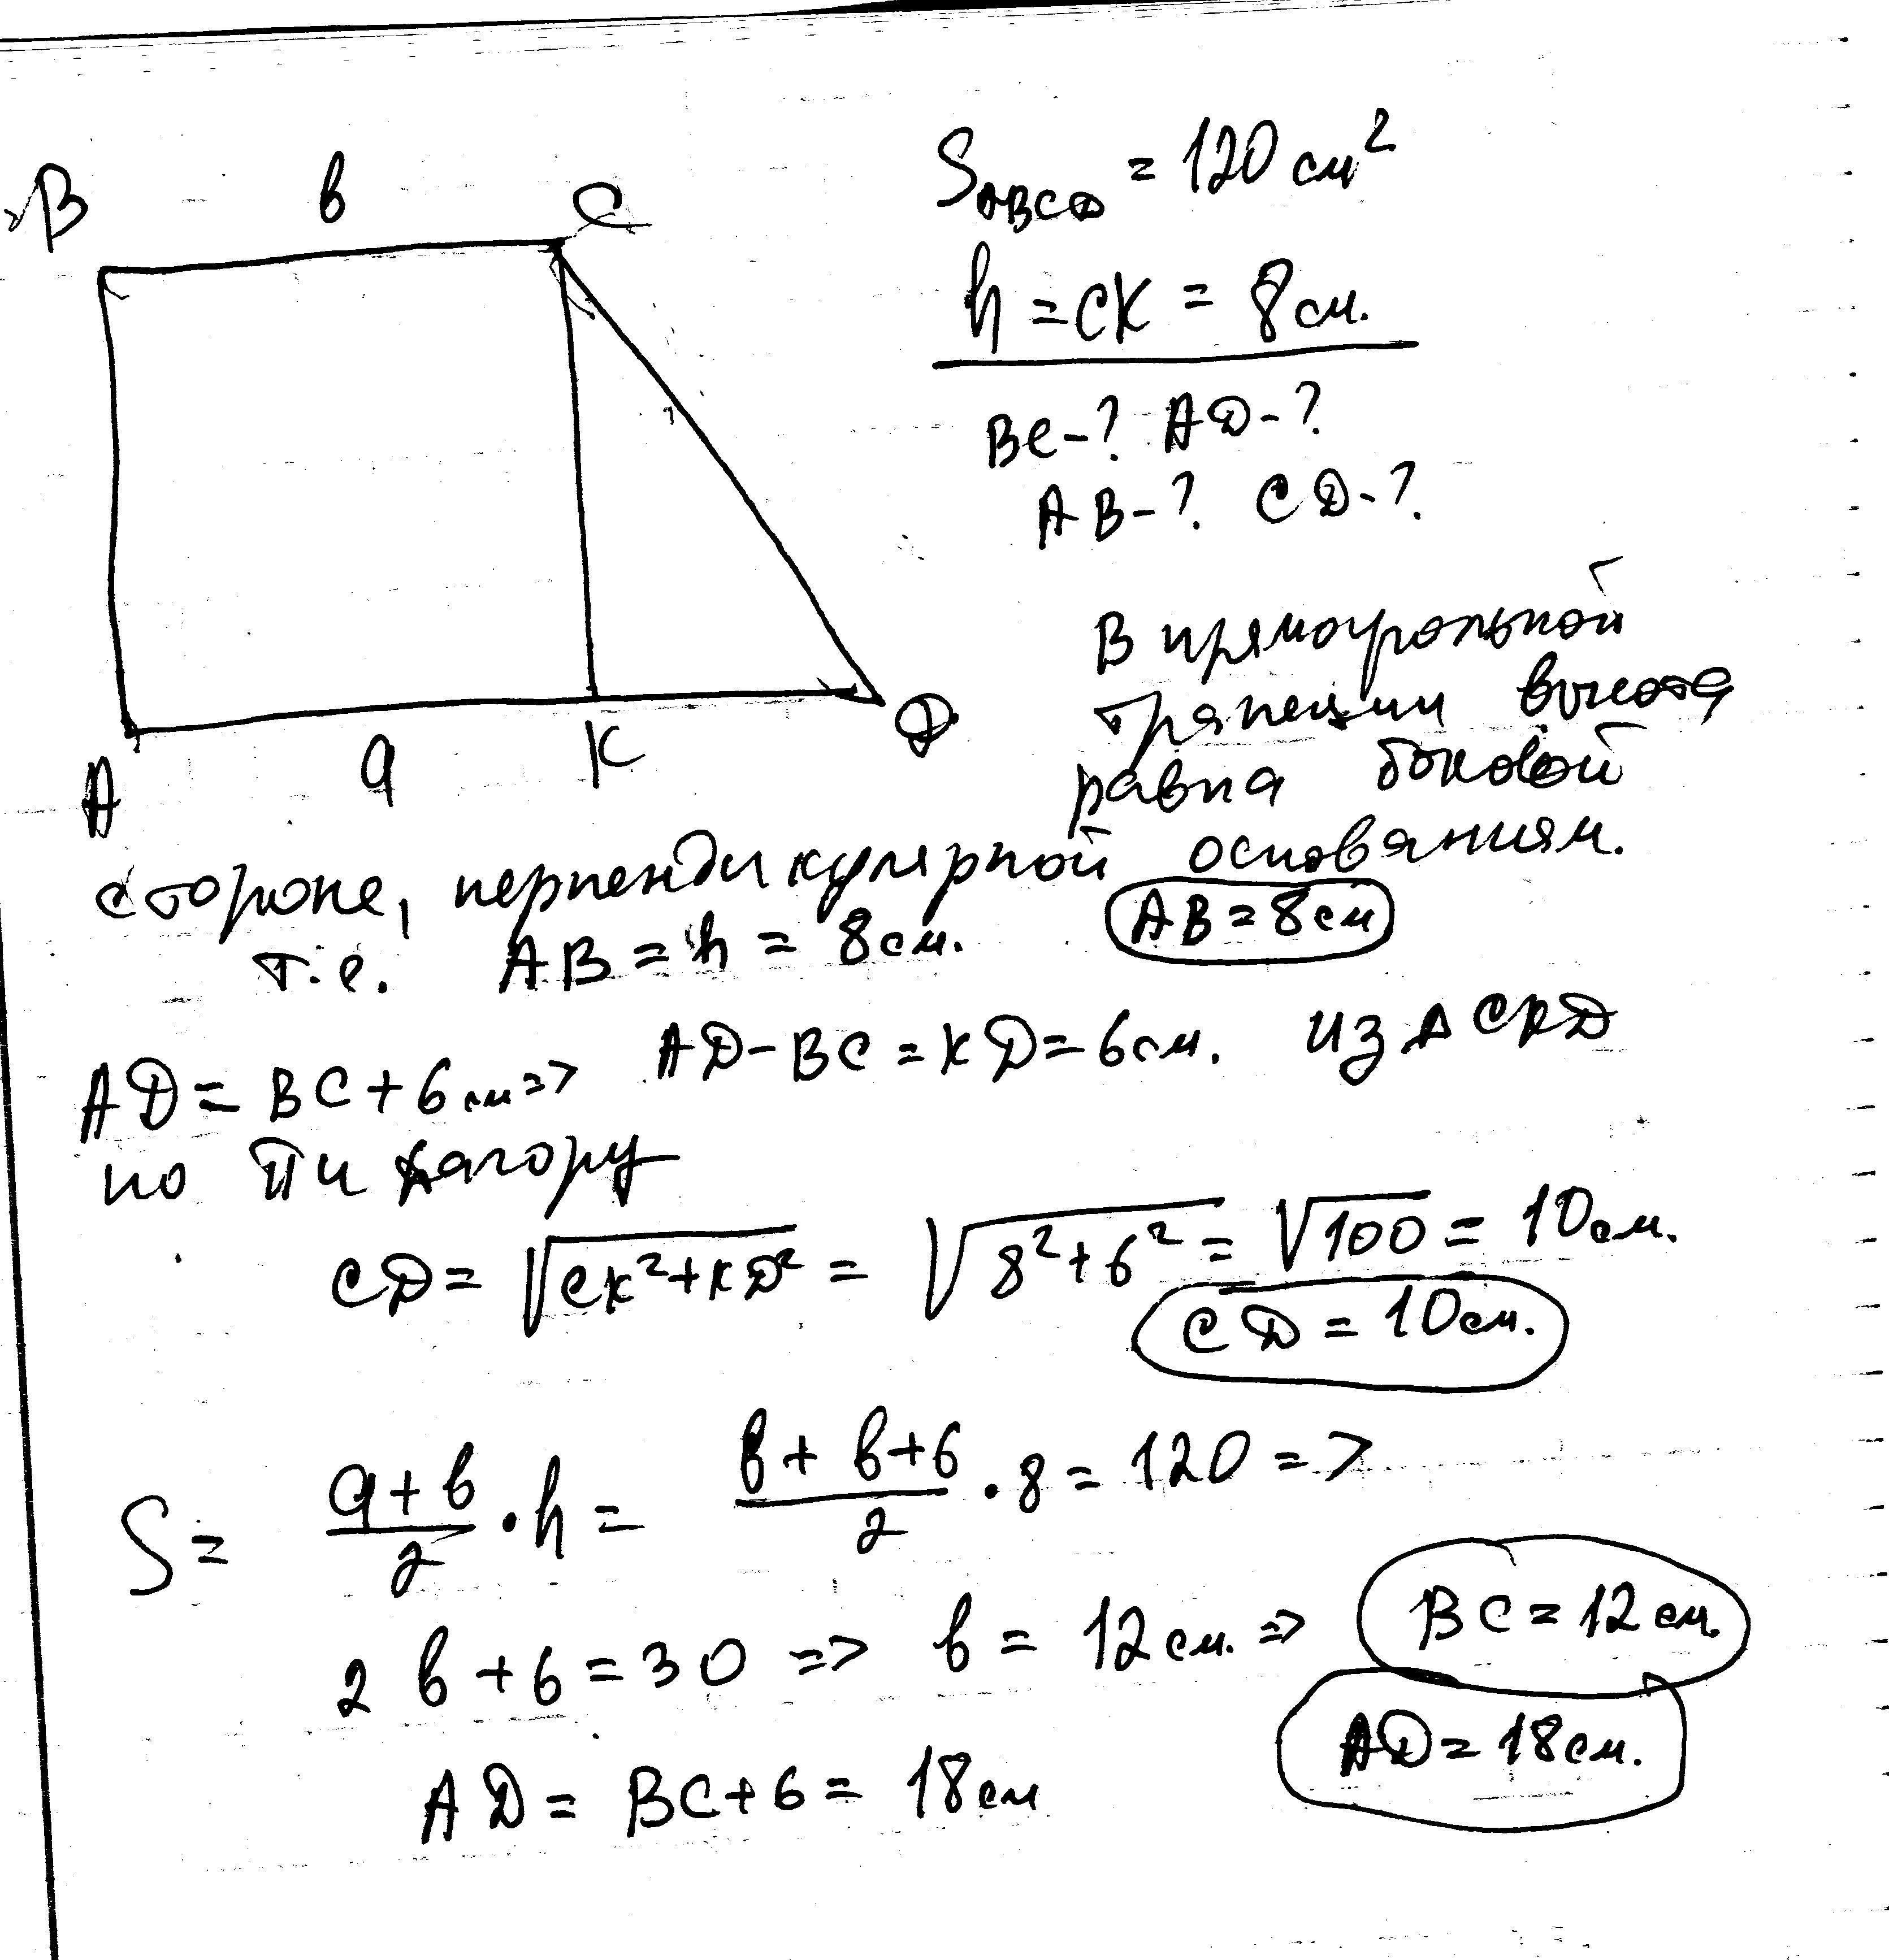 B в C
S_ABCD = 120 см²
h = CK = 8 см.
BC - ? AD - ?
AB - ? CD - ?
A a K D
В прямоугольной
трапеции высота
равна боковой
стороне, перпендикулярной основаниям.
т.е. AB = h = 8 см. AB = 8 см
AD = BC + 6 см => AD - BC = KD = 6 см. из Δ CKD
по Пифагору
CD = √(CK² + KD²) = √(8² + 6²) = √100 = 10 см.
CD = 10 см.
S = (a + в)/2 · h = (в + в + 6)/2 · 8 = 120 =>
2 в + 6 = 30 => в = 12 см. => BC = 12 см.
AD = 18 см.
AD = BC + 6 = 18 см